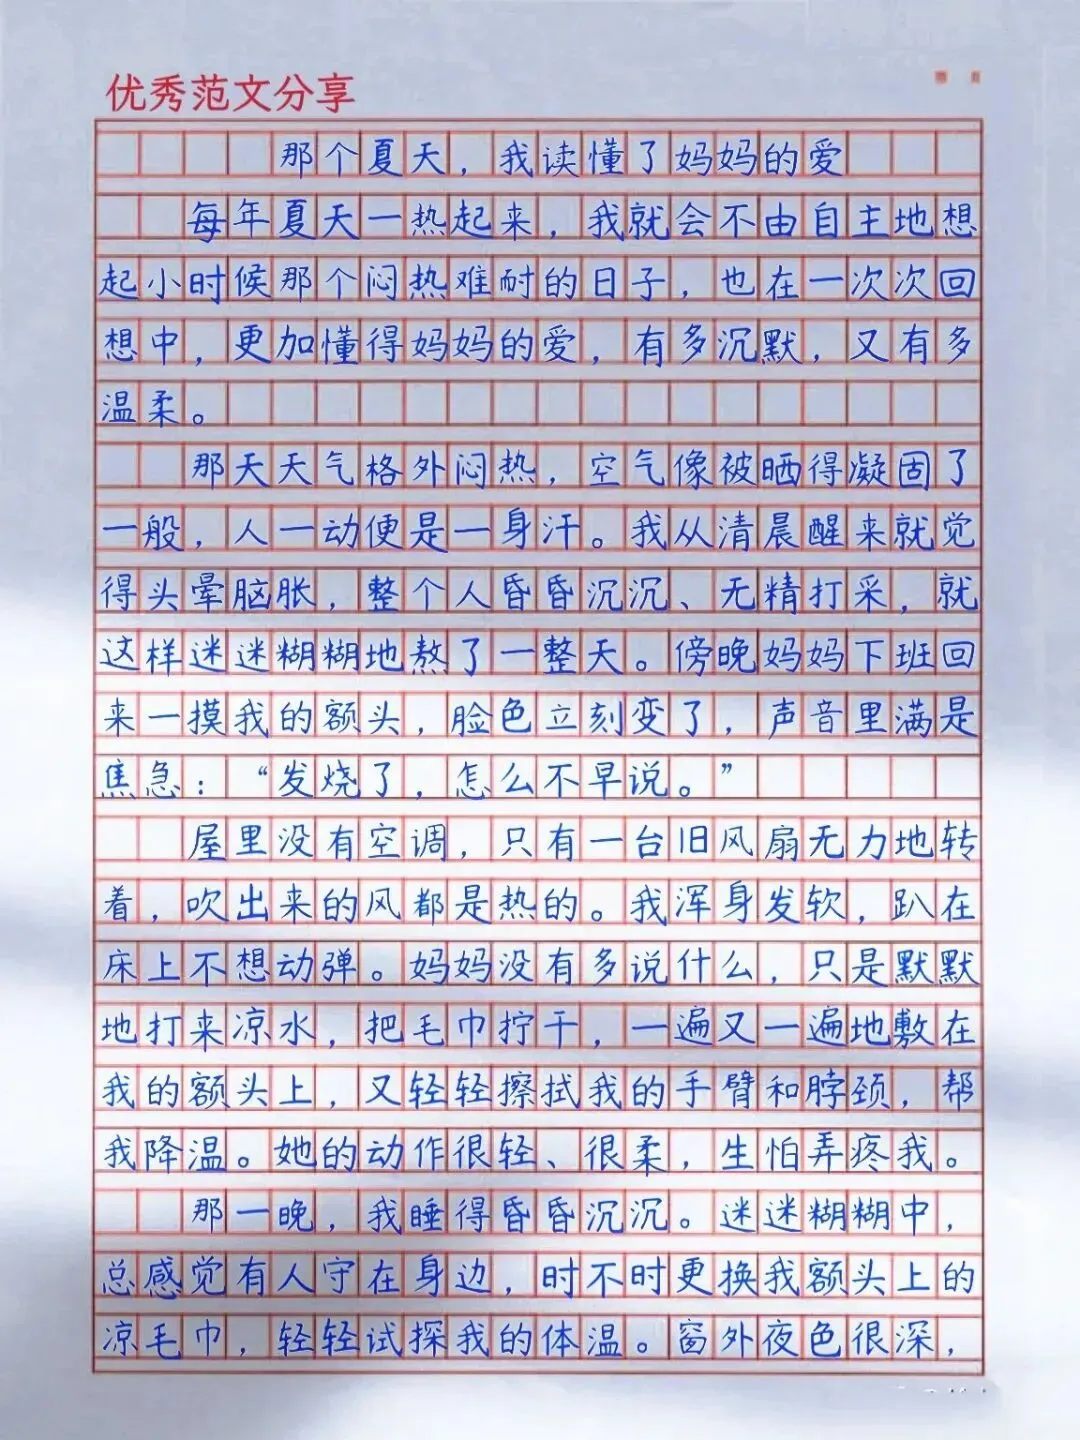 优秀范文分享
那个夏天，我读懂了妈妈的爱
每年夏天一热起来，我就会不由自主地想
起小时候那个闷热难耐的日子，也在一次次回
想中，更加懂得妈妈的爱，有多沉默，又有多
温柔。
那天天气格外闷热，空气像被晒得凝固了
一般，人一动便是一身汗。我从清晨醒来就觉
得头晕脑胀，整个人昏昏沉沉、无精打采，就
这样迷迷糊糊地熬了一整天。傍晚妈妈下班回
来一摸我的额头，脸色立刻变了，声音里满是
焦急：“发烧了，怎么不早说。”
屋里没有空调，只有一台旧风扇无力地转
着，吹出来的风都是热的。我浑身发软，趴在
床上不想动弹。妈妈没有多说什么，只是默默
地打来凉水，把毛巾拧干，一遍又一遍地敷在
我的额头上，又轻轻擦拭我的手臂和脖颈，帮
我降温。她的动作很轻、很柔，生怕弄疼我。
那一晚，我睡得昏昏沉沉。迷迷糊糊中，
总感觉有人守在身边，时不时更换我额头上的
凉毛巾，轻轻试探我的体温。窗外夜色很深，